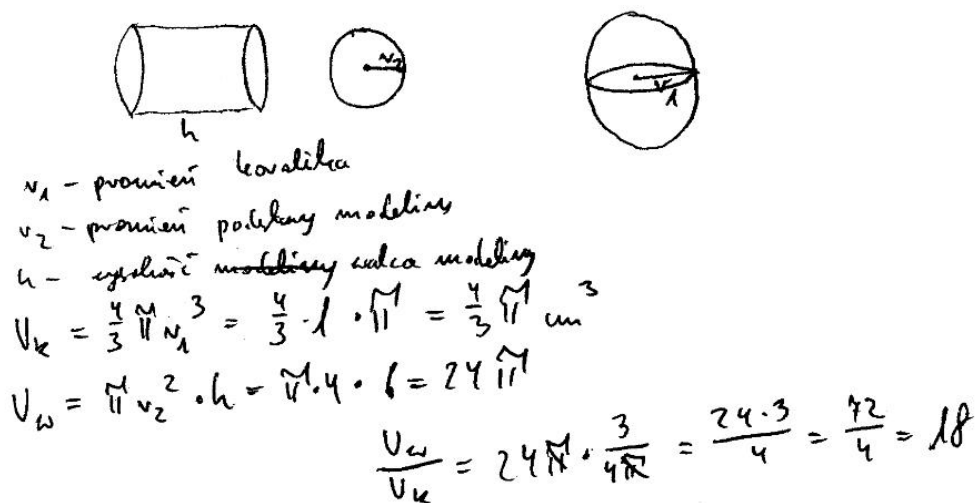 h
r₂
r₁
r₁ - promień koralika
r₂ - promień podstawy modeliny
h - wysokość modeliny walca modeliny
V_k = 4/3 π r₁³ = 4/3 · 1 · π = 4/3 π cm³
V_w = π r₂² · h = π · 4 · 6 = 24π
V_w/V_k = 24π · 3/4π = 24·3/4 = 72/4 = 18